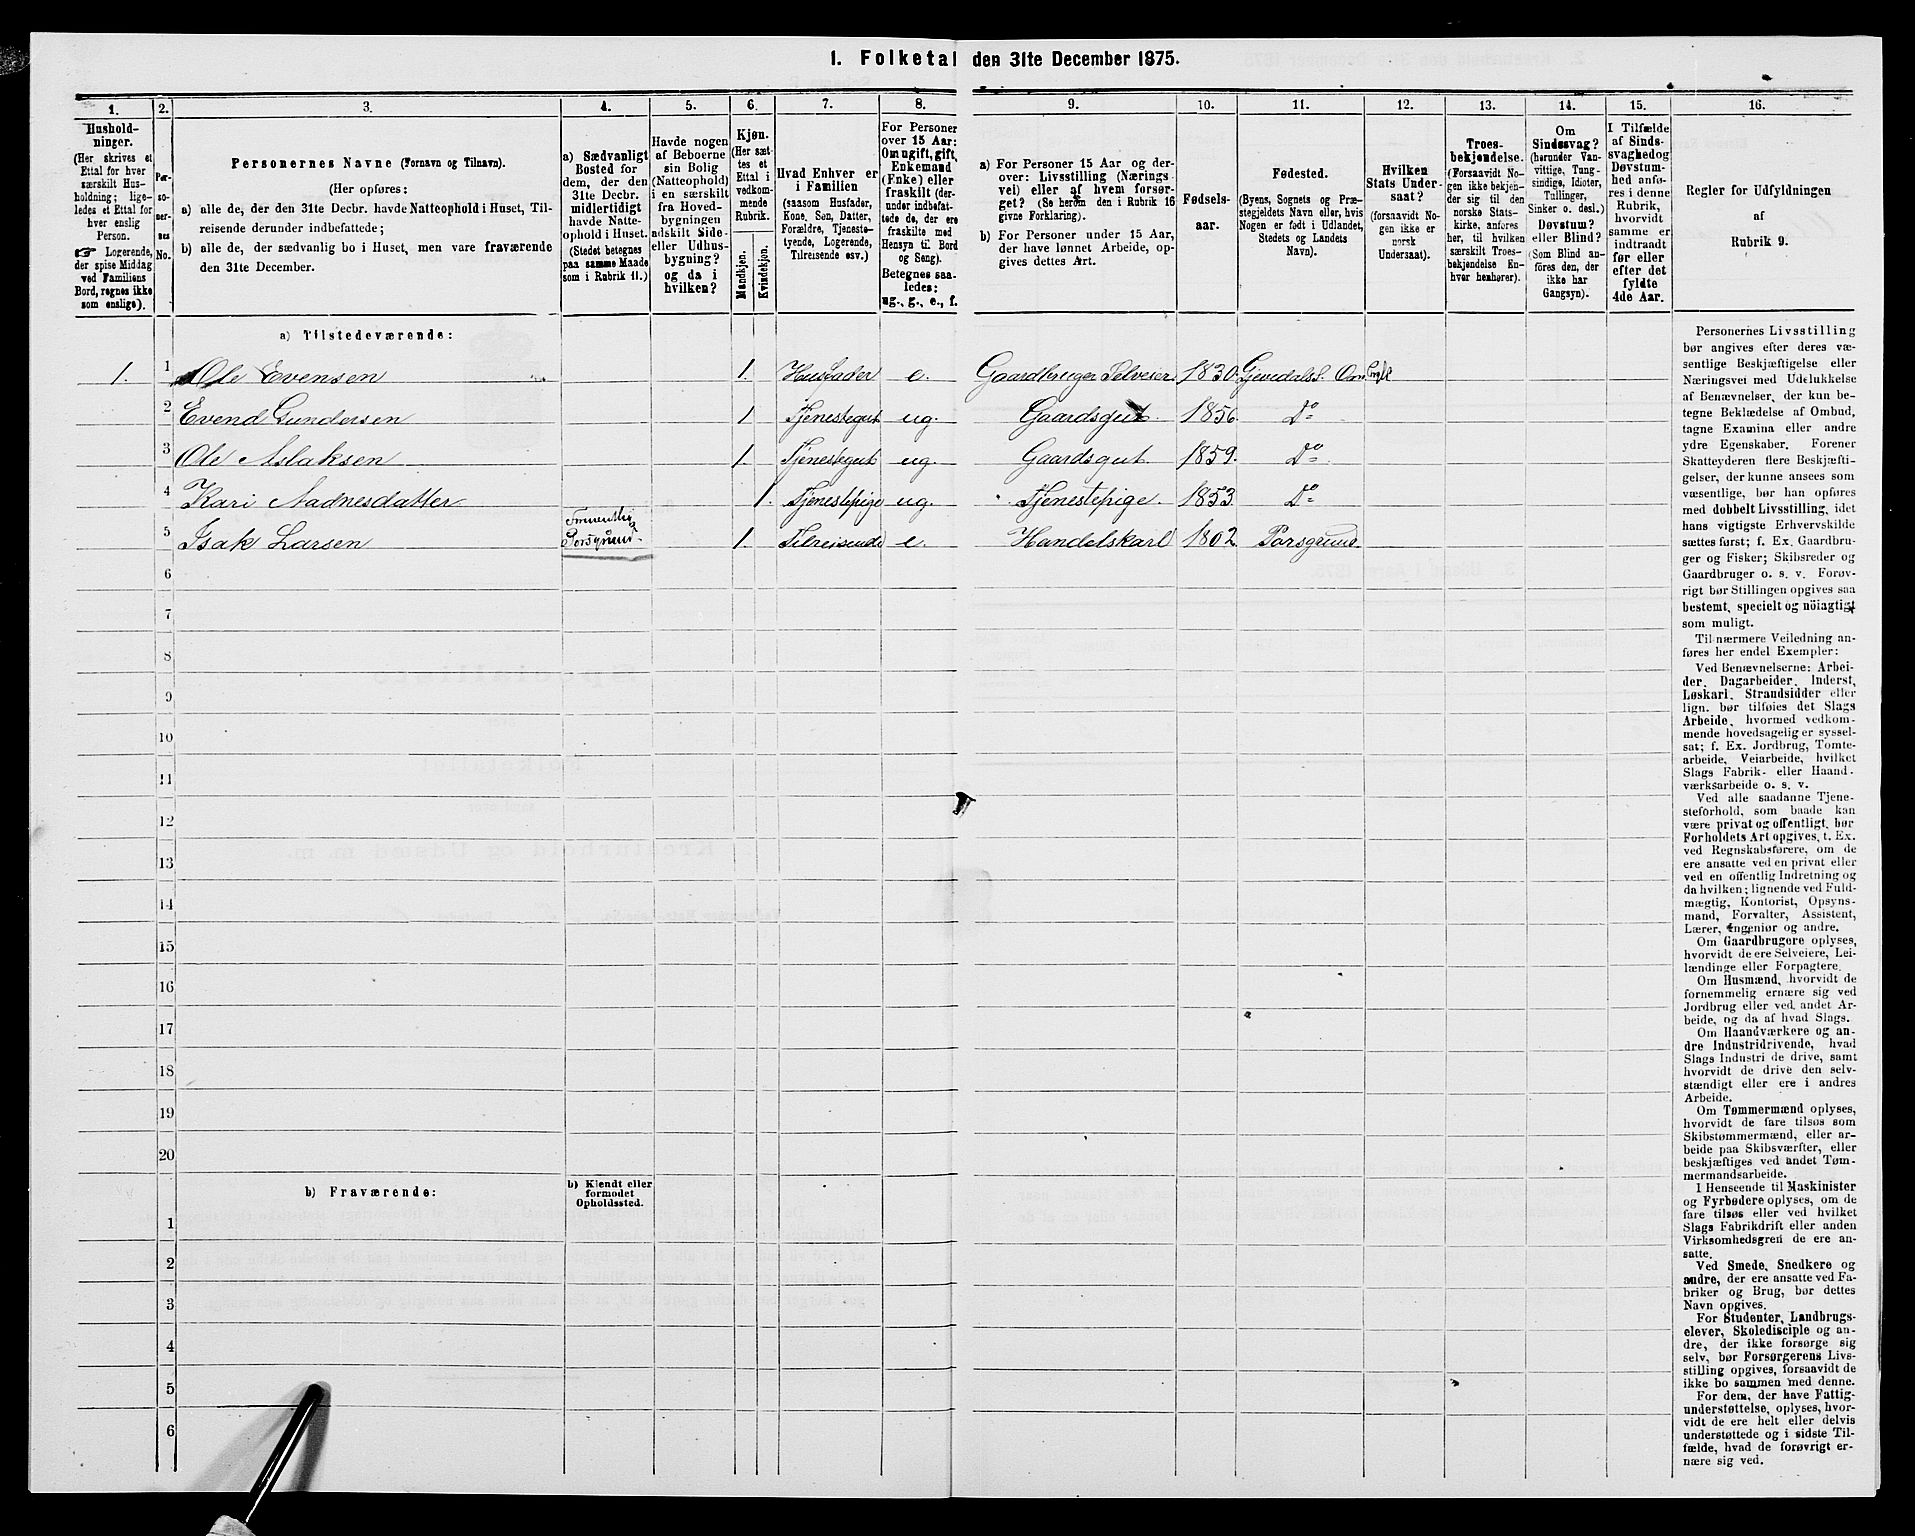 1. Folketal den 31te December 1875.
1.
2.
3.
4.
5.
6.
7.
8.
9.
10.
11.
12.
13.
14.
15.
16.
Hushold-
ninger.
(Her skrives et
Ettal for hver
særskilt Hus-
holdning; lige-
ledes et Ettal for
hver enslig
Person.
☞ Logerende,
der spise Middag
ved Familiens
Bord, regnes ikke
som enslige).
Per-
so-
ner-
nes
No.
Personernes Navne (Fornavn og Tilnavn).
(Her opføres:
a) alle de, der den 31te Decbr. havde Natteophold i Huset, Til-
reisende derunder indbefattede;
b) alle de, der sædvanlig bo i Huset, men vare fraværende
den 31te December.
a) Sædvanligt
Bosted for
dem, der den
31te Decbr.
midlertidigt
havde Natte-
ophold i Huset.
(Stedet betegnes
paa samme Maade
som i Rubrik 11.)
Havde nogen
af Beboerne
sin Bolig
(Natteophold)
i en særskilt
fra Hoved-
bygningen
adskilt Side-
eller Udhus-
bygning?
og da i
hvilken?
Kjøn.
(Her sæt-
tes et
Ettal i
vedkom-
mende
Rubrik.
Mandkjøn.
Kvindekjøn.
Hvad Enhver er
i Familien
(saasom Husfader,
Kone, Søn, Datter,
Forældre, Tjeneste-
tyende, Logerende,
Tilreisende osv.)
For Personer
over 15 Aar:
Om ugift, gift,
Enkemand
(Enke) eller
fraskilt (der-
under indbefat-
tede de, der ere
fraskilte med
Hensyn til Bord
og Seng).
Betegnes saa-
ledes:
ug., g., e., f.
a) For Personer 15 Aar og der-
over: Livsstilling (Nærings-
vei) eller af hvem forsør-
get? (Se herom den i Rubrik 16
givne Forklaring).
b) For Personer under 15 Aar,
der have lønnet Arbeide, op-
gives dettes Art.
Fødsels-
aar.
Fødested.
(Byens, Sognets og Præ-
stegjeldets Navn eller, hvis
Nogen er født i Udlandet,
Stedets og Landets
Navn).
Hvilken
Stats Under-
saat?
(forsaavidt No-
gen ikke er
norsk
Undersaat).
Troes-
bekjendelse.
(Forsaavidt No-
gen ikke bekjen-
der sig til den
norske Stats-
kirke, anføres
her, til hvilken
særskilt Troes-
bekjendelse En-
hver henhører).
Om
Sindssvag?
(herunder Van-
vittige, Tung-
sindige, Idioter,
Tullinger,
Sinker o. desl.)
Døvstum?
eller Blind?
(Som Blind an-
føres den, der
ikke har
Gangsyn).
I Tilfælde
af Sinds-
svaghed og
Døvstum-
hed anfø-
res i denne
Rubrik,
hvorvidt
samme er
indtraadt
før eller
efter det
fyldte
4de Aar.
Regler for Udfyldningen
af
Rubrik 9.
a) Tilstedeværende:
1. 1 Ole Evensen 1. Husfader e. Gaardbruger Selveier 1830.
2 Evend Gundersen 1 Tjenestegut ug. Gaardsgut. 1856. Do
3 Ole Aslaksen 1. Tjenestegut ug. Gaardsgut. 1859. Do
4 Kari Aadnesdatter 1. Tjenestepige ug. Tjenestepige. 1853. Do
5 Isak Larsen Porsgrund. 1. Tilreisende e. Handelskarl 1802. Porsgrund.
6
7
8
9
10
11
12
13
14
15
16
17
18
19
20
b) Fraværende:
b) Kjendt eller
formodet
Opholdssted.
1
2
3
4
5
6
Personernes Livsstilling
bør angives efter deres væ-
sentlige Beskjæftigelse eller
Næringsvei med Udelukkelse
af Benævnelser, der kun be-
tegne Beklædelse af Ombud,
tagne Examina eller andre
ydre Egenskaber. Forener
Skatteyderen flere Beskjæfti-
gelser, der kunne ansees som
væsentlige, bør han opføres
med dobbelt Livsstilling, idet
hans vigtigste Erhvervskilde
sættes først; f. Ex. Gaardbru-
ger og Fisker; Skibsreder og
Gaardbruger o. s. v. Forøv-
rigt bør Stillingen opgives saa
bestemt, specielt og nøiagtigt
som muligt.
Til nærmere Veiledning an-
føres her endel Exempler:
Ved Benævnelserne: Arbei-
der, Dagarbeider, Inderst,
Løskarl, Strandsidder eller
lign. bør tilføies det Slags
Arbeide, hvormed vedkom-
mende hovedsagelig er syssel-
sat; f. Ex. Jordbrug, Tomte-
arbeide, Veiarbeide, hvilket
Slags Fabrik- eller Haand-
værksarbeide o. s. v.
Ved alle saadanne Tjene-
steforhold, som baade kan
være privat og offentligt, bør
Forholdets Art opgives, t. Ex.
ved Regnskabsførere, om de
ere ansatte ved en privat eller
ved en offentlig Indretning og
da hvilken; lignende ved Fuld-
mægtig, Kontorist, Opsyns-
mand, Forvalter, Assistent,
Lærer, Ingeniør og andre.
Om Gaardbrugere oplyses,
hvorvidt de ere Selveiere, Lei-
lændinge eller Forpagtere.
Om Husmænd, hvorvidt de
fornemmelig ernære sig ved
Jordbrug eller ved andet Ar-
beide, og da af hvad Slags.
Om Haandværkere og an-
dre Industridrivende, hvad
Slags Industri de drive, samt
hvorvidt de drive den selv-
stændigt eller ere i andres
Arbeide.
Om Tømmermænd oplyses,
hvorvidt de fare tilsøs som
Skibstømmermænd, eller ar-
beide paa Skibsværfter, eller
beskjæftiges ved andet Tøm-
mermandsarbeide.
I Henseende til Maskinister
og Fyrbødere oplyses, om de
fare tilsøs eller ved hvilket
Slags Fabrikdrift eller anden
Virksomhedsgren de ere an-
satte.
Ved Smede, Snedkere og
andre, der ere ansatte ved Fa-
briker og Brug, bør dettes
Navn opgives.
For Studenter, Landbrugs-
elever, Skoledisciple og an-
dre, der ikke forsørge sig
selv, bør Forsørgerens Livs-
stilling opgives, forsaavidt de
ikke bo sammen med denne.
For dem, der have Fattig-
understøttelse, oplyses, hvor-
vidt de ere helt eller delvis
understøttede og i sidste Til-
fælde, hvad de forøvrigt er-
nære sig ved.